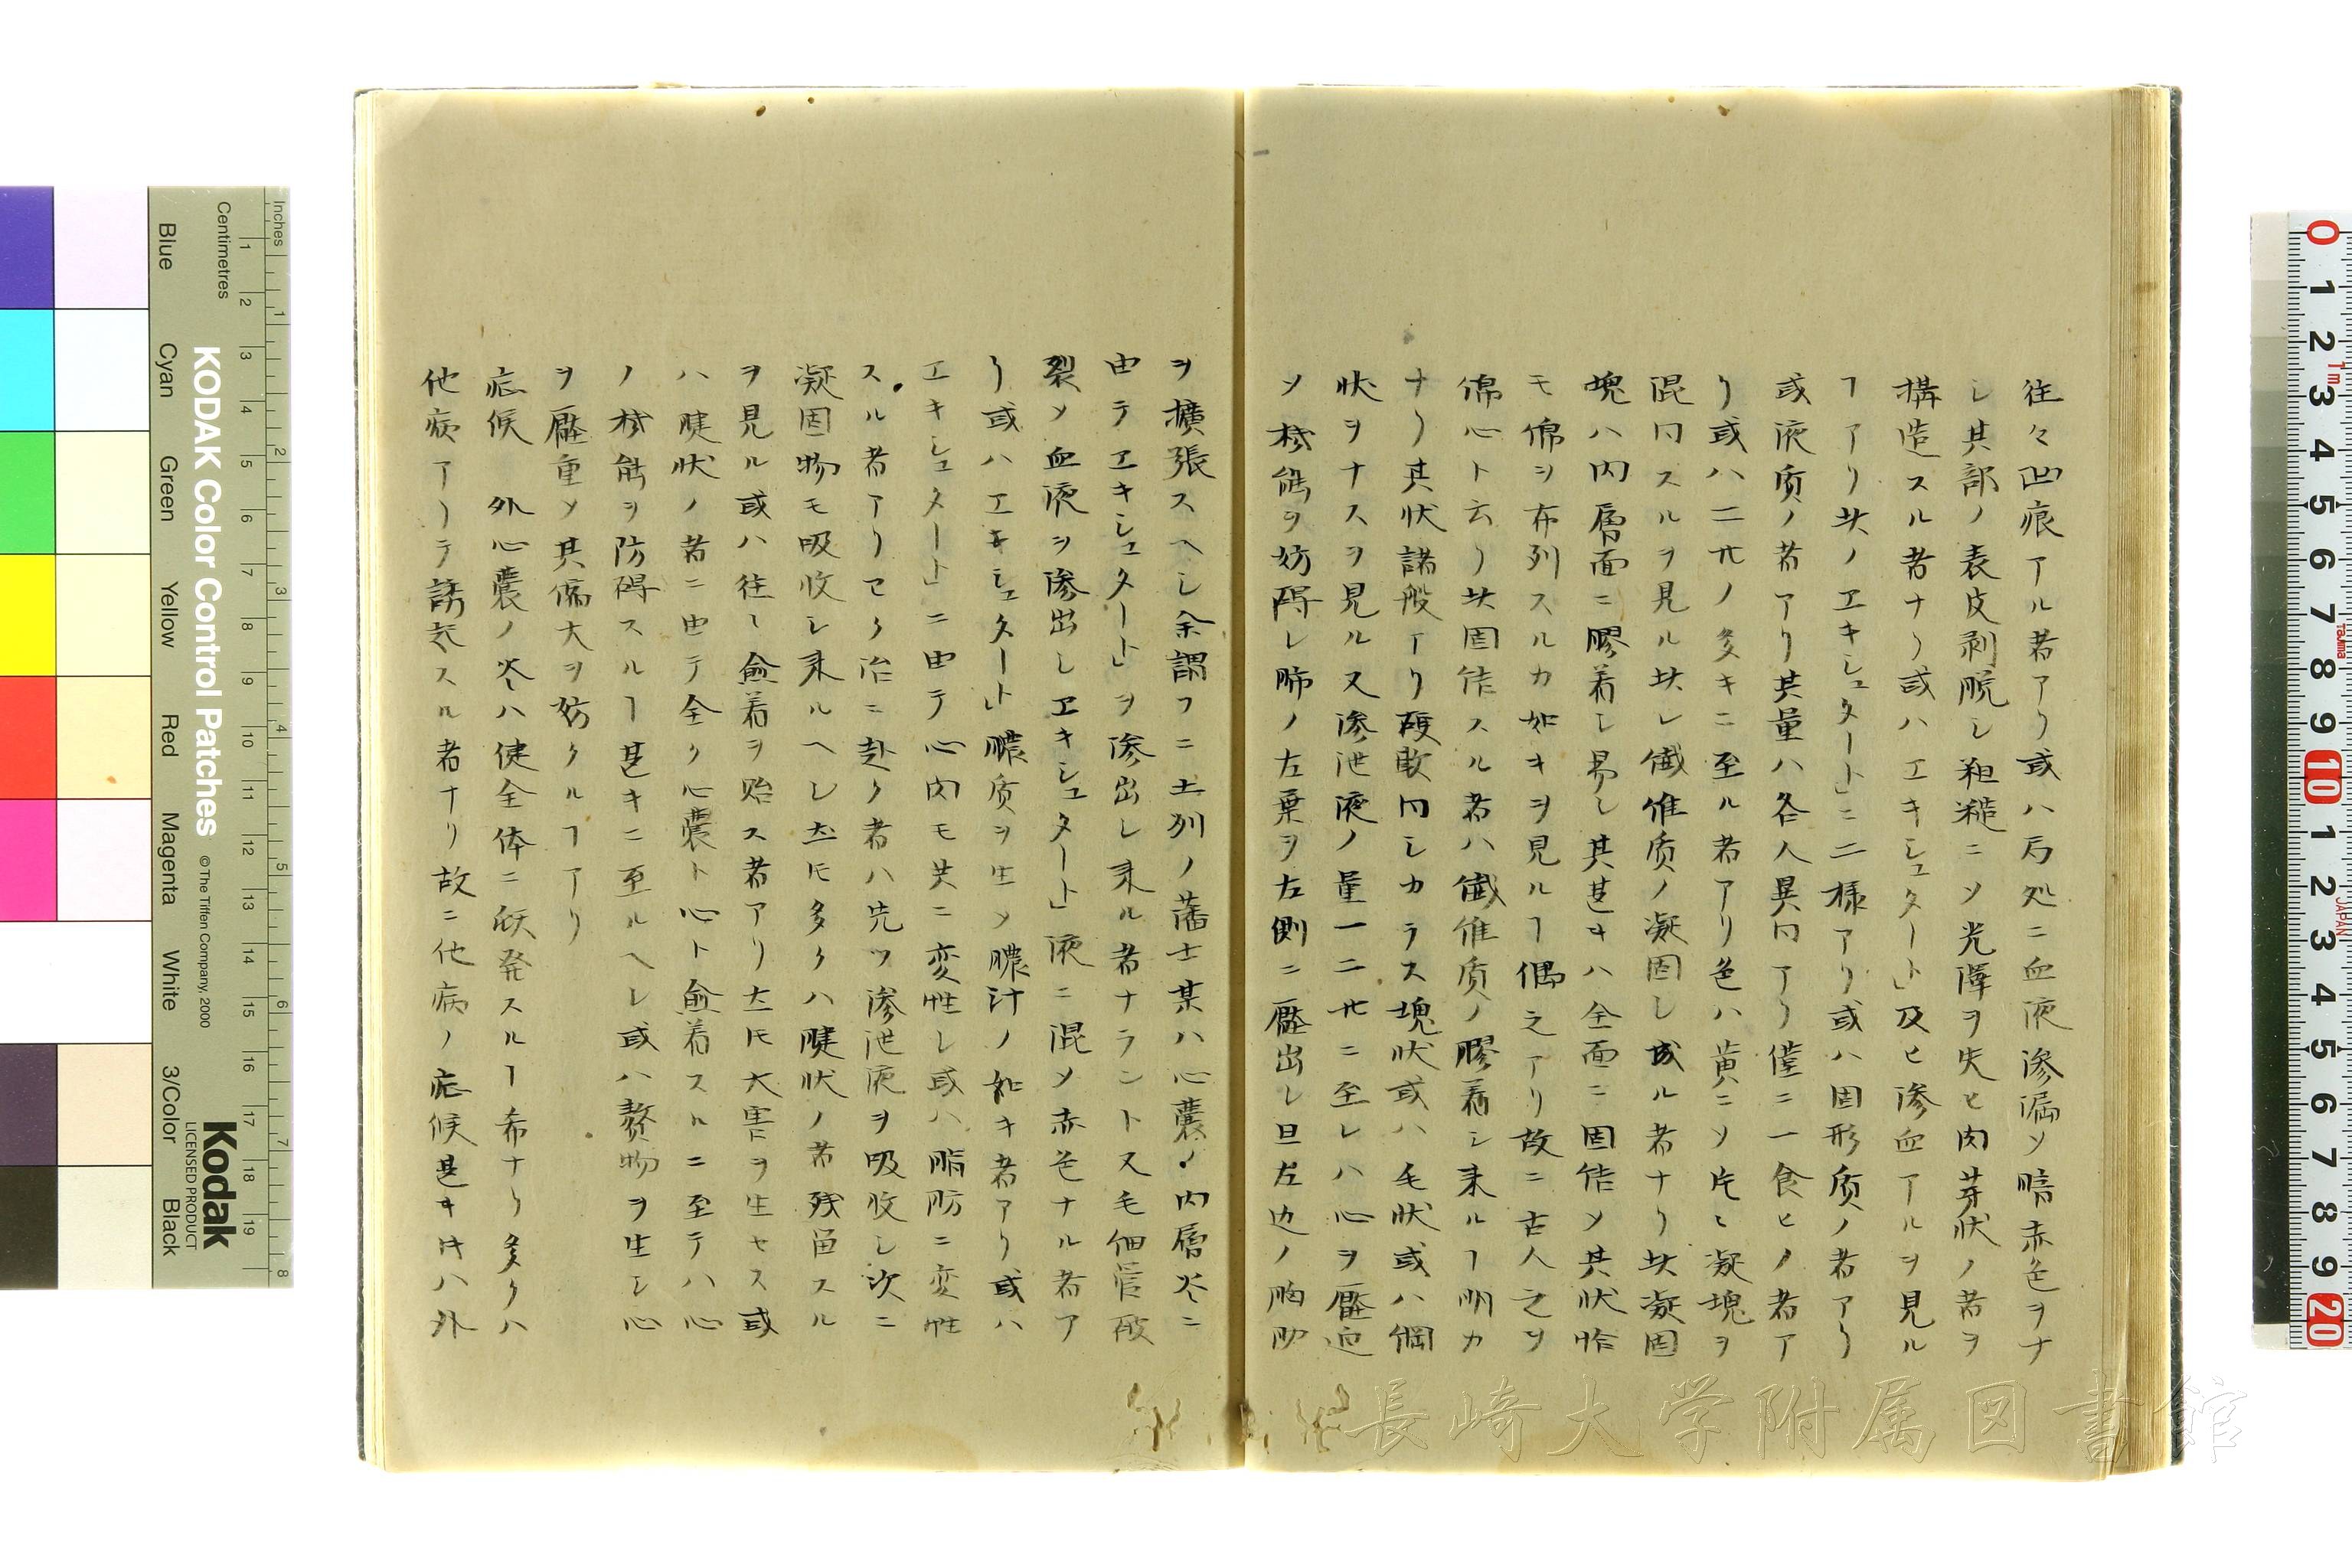 往々凹痕アル者アリ或ハ局処ニ血液滲漏ソ暗赤色ヲナ
シ其部ノ表皮剥脱シ粗糙ニソ光澤ヲ失ヒ肉芽状ノ者ヲ
構造スル者ナリ或ハエキシュタート」及ヒ滲血アルヲ見ル
ヿアリ其ノエキシュタート」ニ二様アリ或ハ固形质ノ者アリ
或液质ノ者アリ其量ハ各人異同アリ僅ニ一食ヒノ者ア
リ或ハ二廿ノ多キニ至ル者アリ色ハ黄ニソ片〻凝塊ヲ
混同スルヲ見ル其レ纎維质ノ凝固シ成ル者ナリ其凝固
塊ハ内層面ニ膠着シ易シ其甚キハ全面ニ固结ソ其状恰
モ绵ヲ布列スルカ如キヲ見ルヿ偶之アリ故ニ古人之ヲ
绵心ト云リ其固结スル者ハ纎維质ノ膠着シ来ルヿ明カ
ナリ其状諸般アリ硬軟同シカラス塊状或ハ毛状或ハ網
状ヲナスヲ見ル又滲泄液ノ量一二廿ニ至レハ心ヲ壓迫
ソ機能ヲ妨碍シ肺ノ左葉ヲ左側ニ壓出シ且左边ノ胸肋
ヲ擴張スヘシ余謂フニ土列ノ藩士某ハ心嚢ノ内層炎ニ
由テエキシュタート」ヲ滲出シ来ル者ナラント又毛细管破
裂ソ血液ヲ滲出シエキシュタート」液ニ混ソ赤色ナル者ア
リ或ハエキシュタート」膿质ヲ生ソ膿汁ノ如キ者アリ或ハ
エキシュタート」ニ由テ心肉モ共ニ変性シ或ハ脂肪ニ変性
スル者アリセリ治ニ赴ク者ハ先ツ滲泄液ヲ吸收シ次ニ
凝固物モ吸收シ来ルヘシ𪜈多クハ腱状ノ者残畄スル
ヲ見ル或ハ往〻愈着ヲ贻ス者アリ𪜈大害ヲ生セス或
ハ腱状ノ者ニ由テ全ク心嚢ト心ト愈着スルニ至テハ心
ノ機能ヲ防碍スルヿ甚キニ至ルヘシ或ハ贅物ヲ生シ心
ヲ壓重ソ其偏大ヲ妨クルヿアリ
症候　外心嚢ノ炎ハ健全体ニ猋発スルヿ希ナリ多クハ
他病アリテ誘起スル者ナリ故ニ他病ノ症候甚キ时ハ外
長崎大学附属図書館
KODAK Color Control Patches
© The Tiffen Company, 2000
Kodak
LICENSED PRODUCT
Inches
Centimetres
Blue
Cyan
Green
Yellow
Red
Magenta
White
3/Color
Black